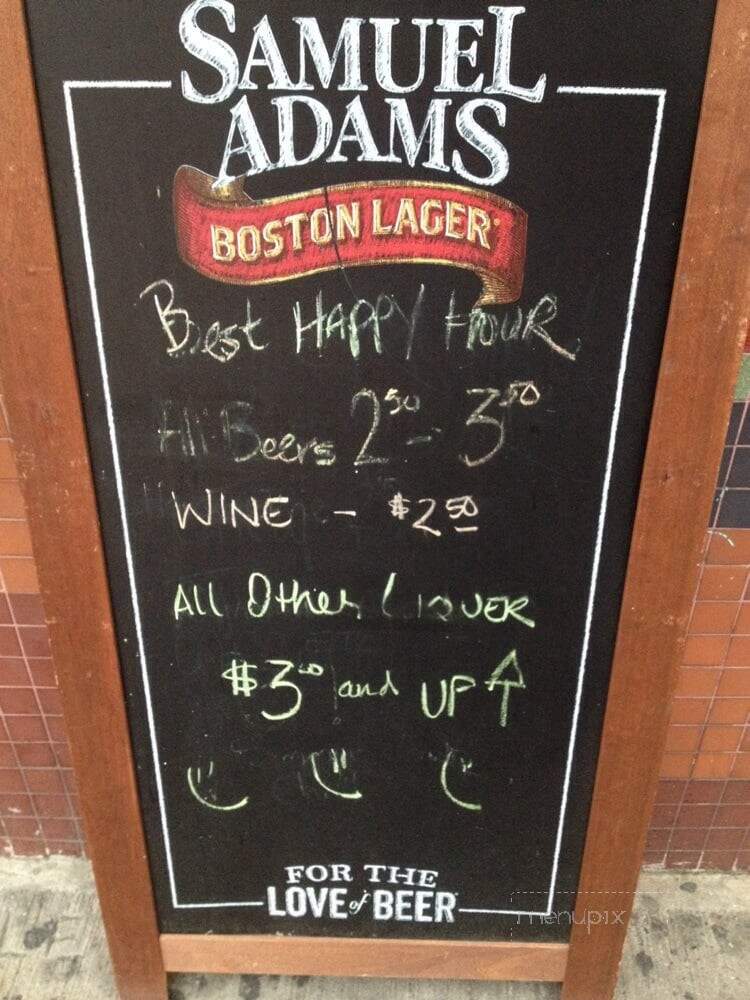 SAMUEL
ADAMS
BOSTON LAGER
Best HAPPY HOUR
All Beers 2.50 - 3.50
WINE - $2.50
All Other LIQUER
$3.00 and UP ↑
FOR THE
LOVE of BEER
menupix